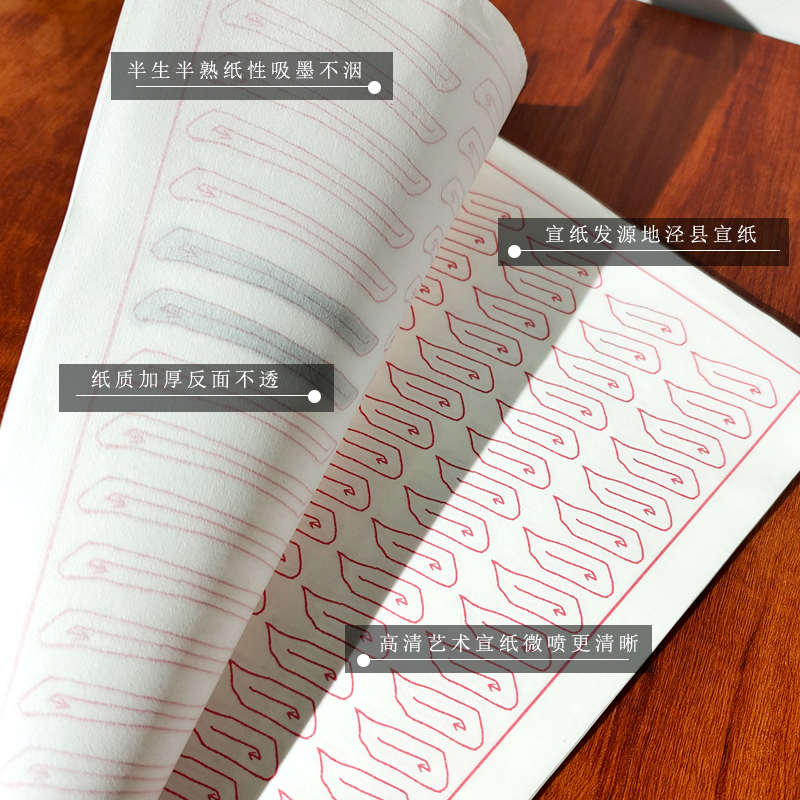 半生半熟纸性吸墨不洇
宣纸发源地泾县宣纸
纸质加厚反面不透
高清艺术宣纸微喷更清晰